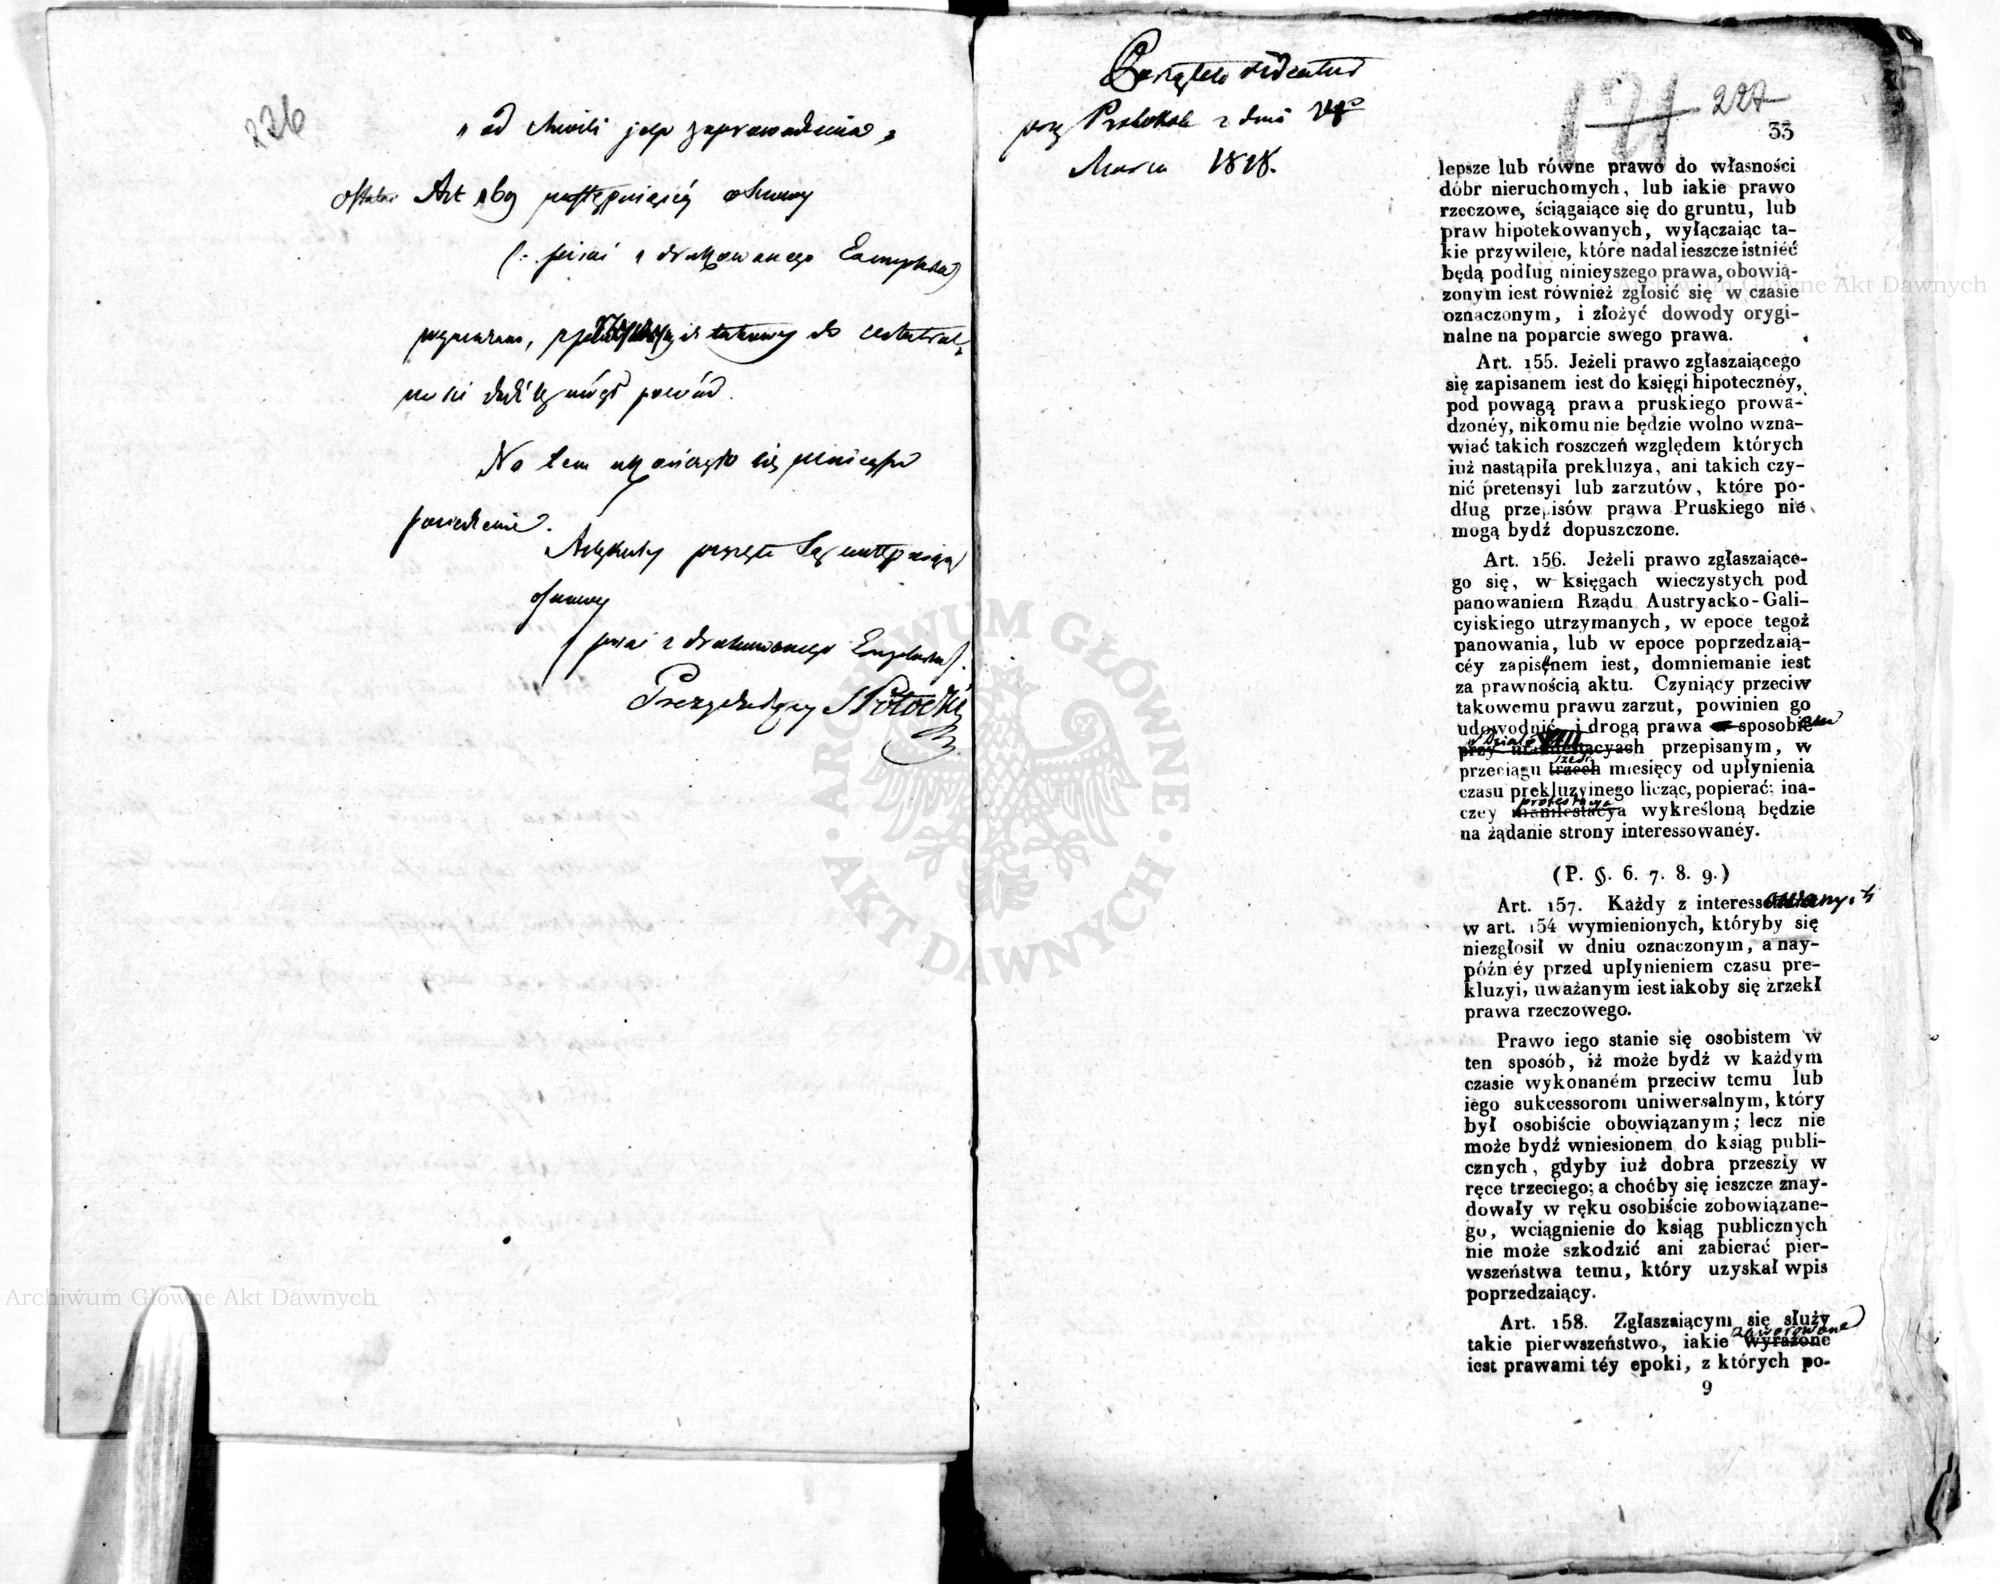 226
„ od chwili jego zaprowadzenia „
Art 169 następuiącéy osnowy
(: pisać z drukowanego Exemplarza)
do ostatecz-
powód.
Na tem ukończyło się ninieysze
posiedzenie.
Artykuły przyięte są następuiącéy
osnowy
pisać z drukowanego Exemplarza
Prezyduiący Potocki
Początek videatur
przy Protokole z dnia 14º
Marca 1818.
171 227
33
lepsze lub równe prawo do własności
dóbr nieruchomych, lub iakie prawo
rzeczowe, ściągaiące się do gruntu, lub
praw hipotekowanych, wyłączaiąc ta-
kie przywileie, które nadal ieszcze istnieć
będą podług ninieyszego prawa, obowią-
zonym iest również zgłosić się w czasie
oznaczonym, i złożyć dowody orygi-
nalne na poparcie swego prawa.
Art. 155. Jeżeli prawo zgłaszaiącego
się zapisanem iest do księgi hipotecznéy,
pod powagą prawa pruskiego prowa-
dzonéy, nikomu nie będzie wolno wzna-
wiać takich roszczeń względem których
iuż nastąpiła prekluzya, ani takich czy-
nić pretensyi lub zarzutów, które po-
dług przepisów prawa Pruskiego nie
mogą bydź dopuszczone.
Art. 156. Jeżeli prawo zgłaszaiące-
go się, w księgach wieczystych pod
panowaniem Rządu Austryacko-Gali-
cyiskiego utrzymanych, w epoce tegoż
panowania, lub w epoce poprzedzaią-
céy zapisanem iest, domniemanie iest
za prawnością aktu. Czyniący przeciw
takowemu prawu zarzut, powinien go
udowodnić i drogą prawa w sposobie
w Dziale VIII
przy manifestacyach przepisanym, w
przeciągu trzech miesięcy od upłynienia
czasu prekluzyinego licząc, popierać; ina-
protestacya
czey manifestacya wykreśloną będzie
na żądanie strony interessowanéy.
(P. §. 6. 7. 8. 9.)
Art. 157. Każdy z interessowanych
w art. 154 wymienionych, któryby się
niezgłosił w dniu oznaczonym, a nay-
późniéy przed upłynieniem czasu pre-
kluzyi, uważanym iest iakoby się zrzekł
prawa rzeczowego.
Prawo iego stanie się osobistem w
ten sposób, iż może bydź w każdym
czasie wykonaném przeciw temu lub
iego sukcessorom uniwersalnym, który
był osobiście obowiązanym; lecz nie
może bydź wniesionem do ksiąg publi-
cznych, gdyby iuż dobra przeszły w
ręce trzeciego; a choćby się ieszcze znay-
dowały w ręku osobiście zobowiązane-
go, wciągnienie do ksiąg publicznych
nie może szkodzić ani zabierać pier-
wszeństwa temu, który uzyskał wpis
poprzedzaiący.
Art. 158. Zgłaszaiącym się służy
zawarowane
takie pierwszeństwo, iakie wyrażone
iest prawami téy epoki, z których po-
9
Archiwum Główne Akt Dawnych
Archiwum Główne Akt Dawnych
ARCHIWUM GŁÓWNE
AKT DAWNYCH